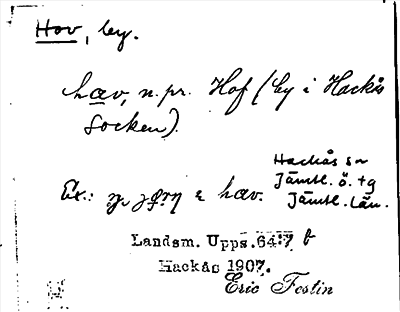 Hov, by.
hav, n. pr. Hof (by i Hackås
Socken).
Hackås sn
Jämtl. ö. tg
Jämtl. län.
Ex.: hav.
Landsm. Upps. 64:7 b
Hackås 1907.
Eric Festin